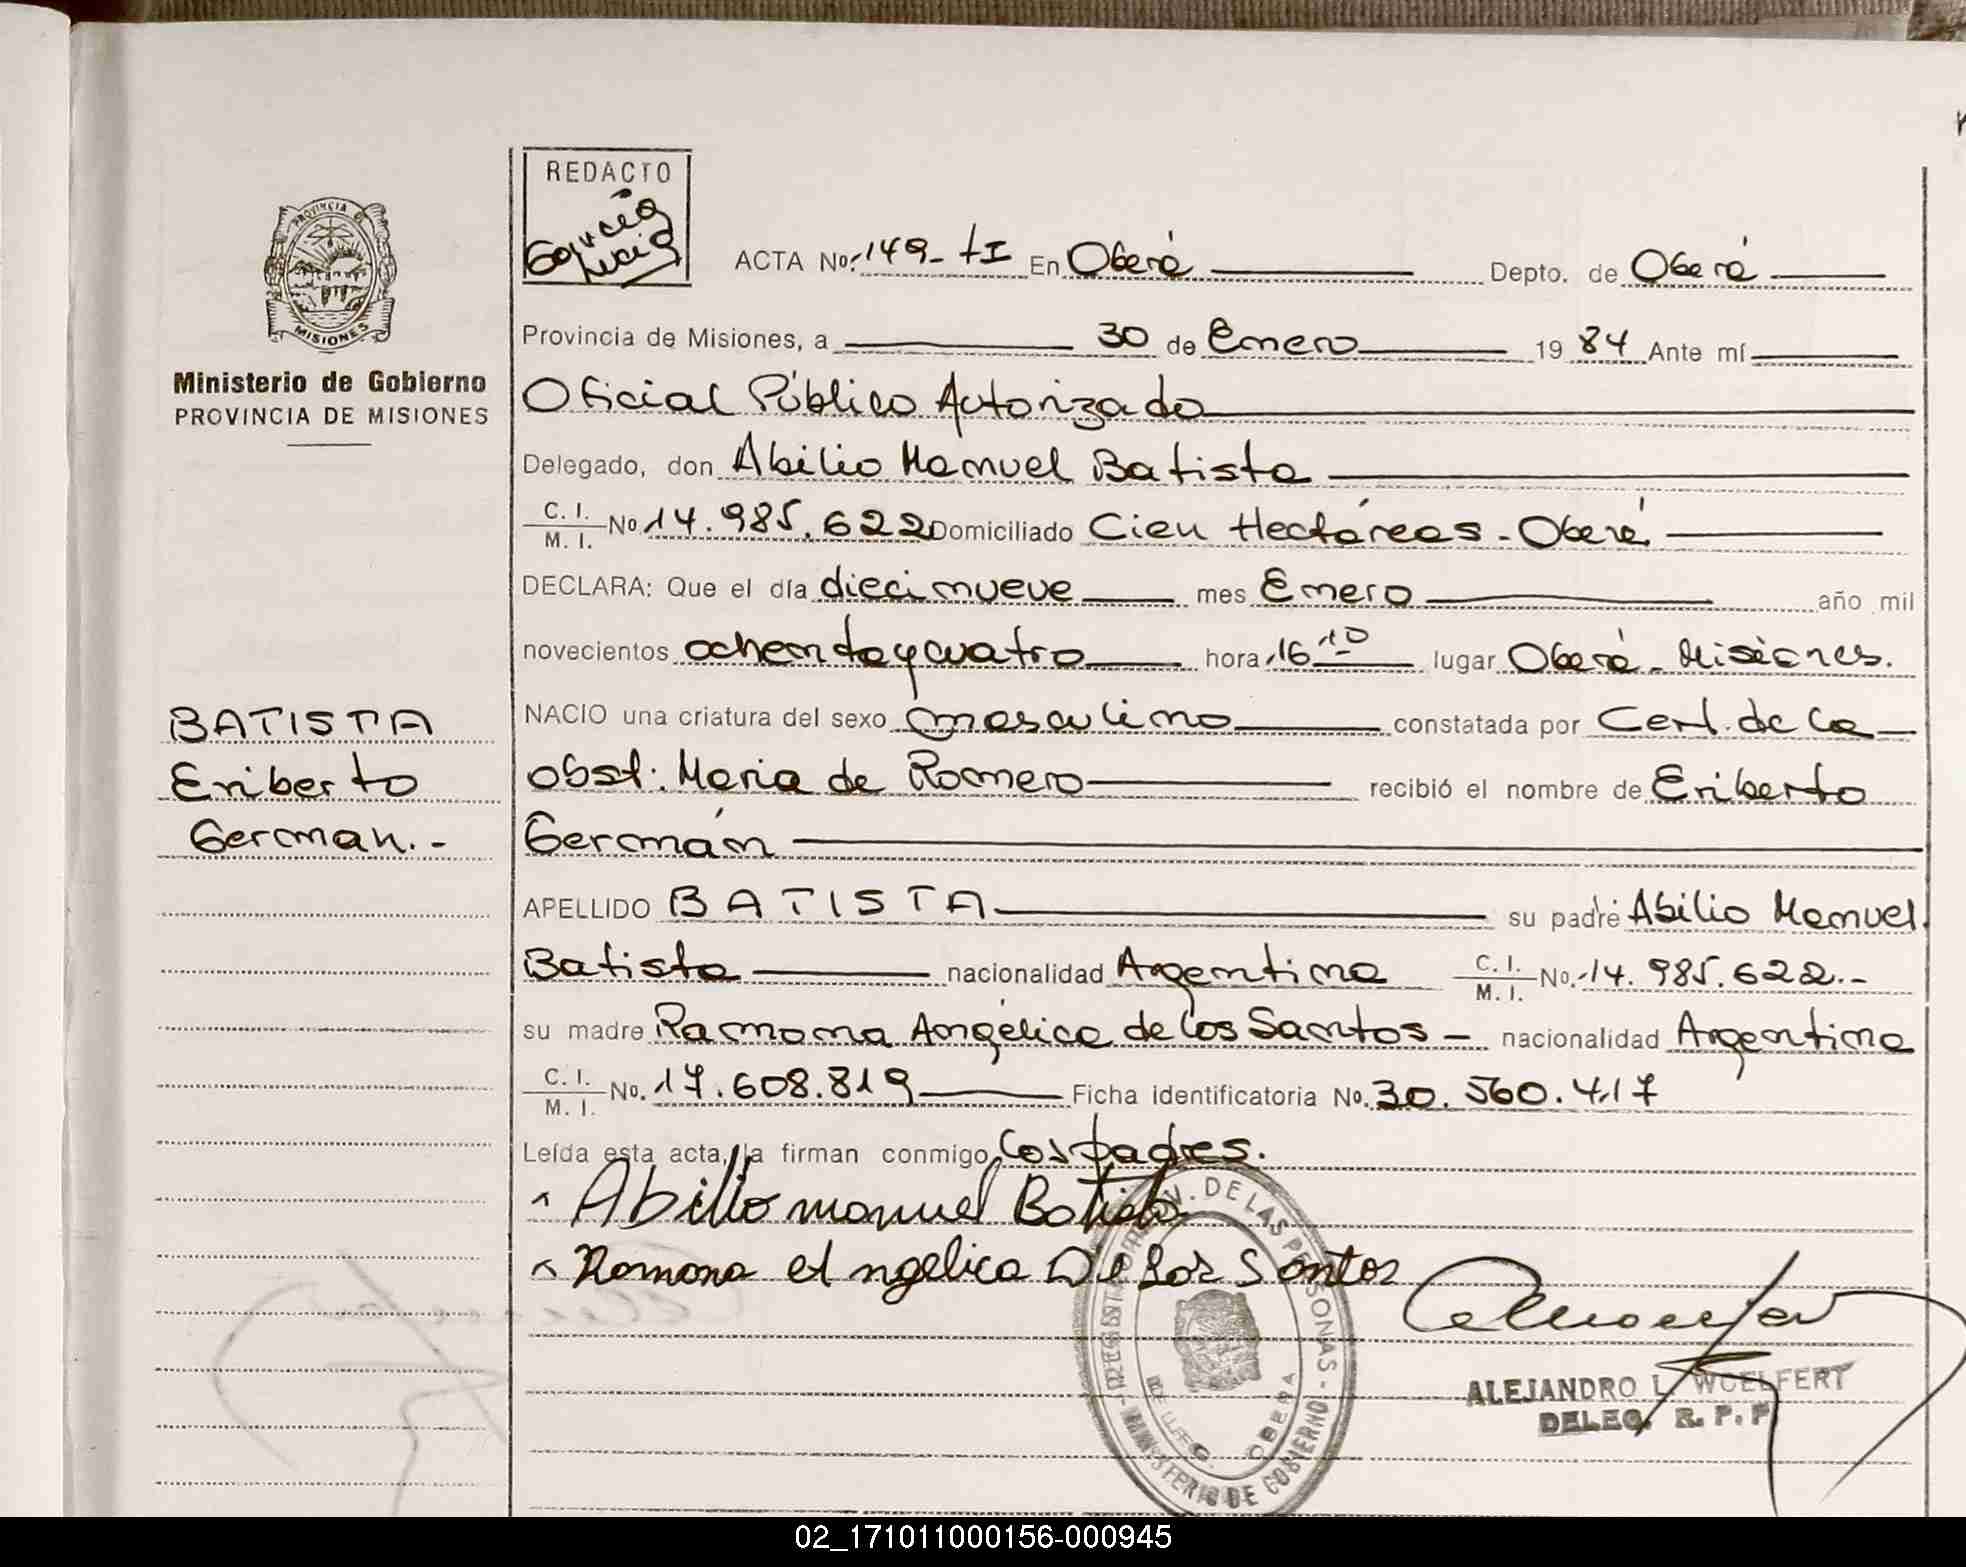 REDACTO
García
Lucía
ACTA No. 149- tI En Oberá Depto. de Oberá
PROVINCIA DE
MISIONES
Provincia de Misiones, a 30 de Enero 19 84 Ante mí
Ministerio de Gobierno
PROVINCIA DE MISIONES
Oficial Público Autorizado
Delegado, don Abilio Manuel Batista
C. I.
M. I. No. 14.985.622 Domiciliado Cien Hectáreas - Oberá
DECLARA: Que el día diecinueve mes Enero año mil
novecientos ochenta y cuatro hora 16 10 lugar Oberá - Misiones.
NACIO una criatura del sexo masculino constatada por Cert. de la
obst. Maria de Romero recibió el nombre de Eriberto
Germán
BATISTA
Eriberto
German.-
APELLIDO BATISTA su padre Abilio Manuel
Batista nacionalidad Argentina C. I.
M. I. No. 14.985.622.-
su madre Ramona Angélica de los Santos - nacionalidad Argentina
C. I.
M. I. No. 17.608.819 Ficha identificatoria No. 30.560.417
Leída esta acta, la firman conmigo los padres.
Abilio manuel Batista
Ramona Angelica De Los Santos
V. DE LAS PERSONAS - MINISTERIO DE GOBIERNO
OBERA
ALEJANDRO L. WOELFERT
DELEG. R. P. P.
02_171011000156-000945